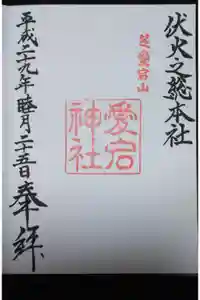 伏火之総本社
芝愛宕山
愛宕神社
奉拝
平成二十九年睦月二十五日